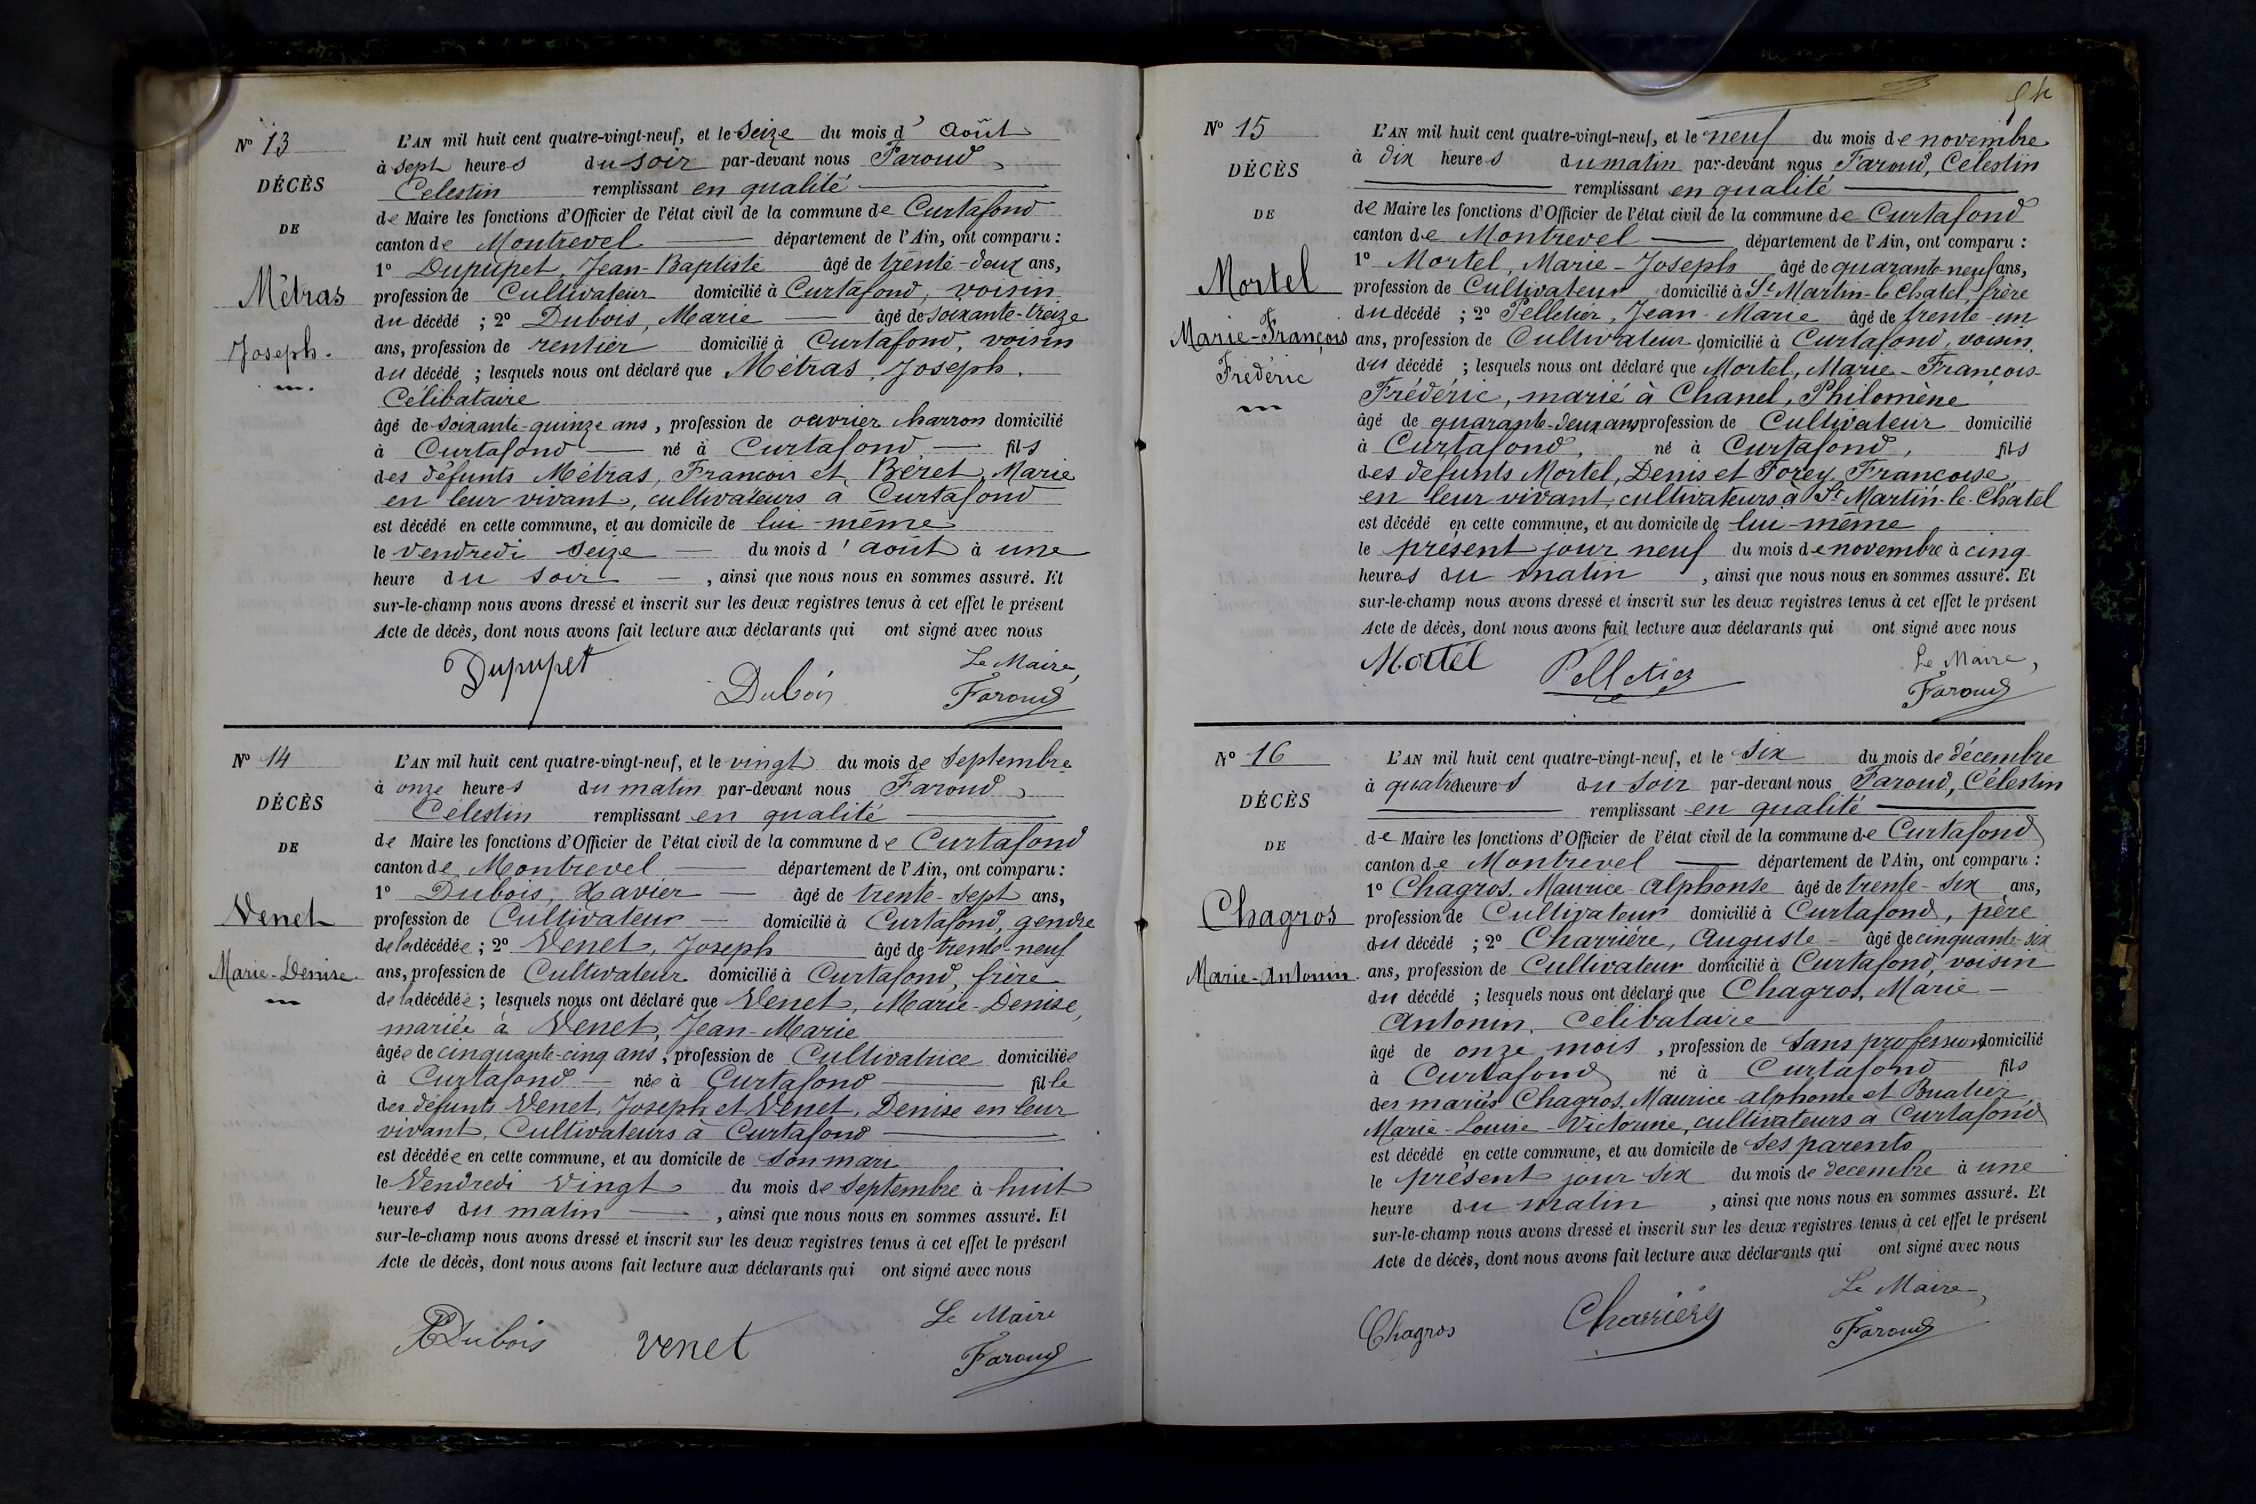 N° 13
DÉCÈS
DE
Métras
Joseph.
L'AN mil huit cent quatre-vingt-neuf, et le Seize du mois d'Août
à sept heures du soir par-devant nous Faroud,
Célestin remplissant en qualité
de Maire les fonctions d'Officier de l'état civil de la commune de Curtafond
canton de Montrevel département de l'Ain, ont comparu :
1° Dupupet, Jean-Baptiste âgé de trente-deux ans,
profession de Cultivateur domicilié à Curtafond, voisin
du décédé ; 2° Dubois, Marie âgé de soixante-treize
ans, profession de rentier domicilié à Curtafond, voisin
du décédé ; lesquels nous ont déclaré que Métras, Joseph.
Célibataire
âgé de soixante-quinze ans, profession de ouvrier charron domicilié
à Curtafond né à Curtafond fils
des défunts Métras, François et Béret, Marie
en leur vivant, cultivateurs à Curtafond
est décédé en cette commune, et au domicile de lui-même
le vendredi seize du mois d'août à une
heure du soir , ainsi que nous nous en sommes assuré. Et
sur-le-champ nous avons dressé et inscrit sur les deux registres tenus à cet effet le présent
Acte de décès, dont nous avons fait lecture aux déclarants qui ont signé avec nous
Dupupet Dubois Le Maire,
Faroud
N° 14
DÉCÈS
DE
Venet
Marie-Denise
L'AN mil huit cent quatre-vingt-neuf, et le vingt du mois de Septembre
à onze heures du matin par-devant nous Faroud,
Célestin remplissant en qualité
de Maire les fonctions d'Officier de l'état civil de la commune de Curtafond
canton de Montrevel département de l'Ain, ont comparu :
1° Dubois, Xavier âgé de trente-sept ans,
profession de Cultivateur domicilié à Curtafond, gendre
de la décédée ; 2° Venet, Joseph âgé de trente-neuf
ans, profession de Cultivateur domicilié à Curtafond, frère
de la décédée ; lesquels nous ont déclaré que Venet, Marie-Denise,
mariée à Venet, Jean-Marie
âgée de cinquante-cinq ans, profession de Cultivatrice domiciliée
à Curtafond née à Curtafond fille
des défunts Venet, Joseph et Venet, Denise en leur
vivant, Cultivateurs à Curtafond
est décédée en cette commune, et au domicile de son mari
le Vendredi vingt du mois de septembre à huit
heures du matin , ainsi que nous nous en sommes assuré. Et
sur-le-champ nous avons dressé et inscrit sur les deux registres tenus à cet effet le présent
Acte de décès, dont nous avons fait lecture aux déclarants qui ont signé avec nous
Dubois venet Le Maire
Faroud
N° 15
DÉCÈS
DE
Mortel
Marie-François
Frédéric
L'AN mil huit cent quatre-vingt-neuf, et le neuf du mois de novembre
à dix heures du matin par-devant nous Faroud, Célestin
remplissant en qualité
de Maire les fonctions d'Officier de l'état civil de la commune de Curtafond
canton de Montrevel département de l'Ain, ont comparu :
1° Mortel, Marie-Joseph âgé de quarante-neuf ans,
profession de Cultivateur domicilié à St Martin-le-Chatel, frère
du décédé ; 2° Pelletier, Jean-Marie âgé de trente-un
ans, profession de Cultivateur domicilié à Curtafond, voisin
du décédé ; lesquels nous ont déclaré que Mortel, Marie-François-
Frédéric, marié à Chanel, Philomène
âgé de quarante-deux ans profession de Cultivateur domicilié
à Curtafond, né à Curtafond, fils
des défunts Mortel, Denis et Forey, Françoise,
en leur vivant, cultivateurs à St Martin-le-Chatel
est décédé en cette commune, et au domicile de lui-même
le présent jour neuf du mois de novembre à cinq
heures du matin , ainsi que nous nous en sommes assuré. Et
sur-le-champ nous avons dressé et inscrit sur les deux registres tenus à cet effet le présent
Acte de décès, dont nous avons fait lecture aux déclarants qui ont signé avec nous
Mortel Pelletier Le Maire,
Faroud
N° 16
DÉCÈS
DE
Chagros
Marie-Antonin
L'AN mil huit cent quatre-vingt-neuf, et le Six du mois de décembre
à quatre heures du soir par-devant nous Faroud, Célestin
remplissant en qualité
de Maire les fonctions d'Officier de l'état civil de la commune de Curtafond
canton de Montrevel département de l'Ain, ont comparu :
1° Chagros, Maurice-Alphonse âgé de trente-six ans,
profession de Cultivateur domicilié à Curtafond, père
du décédé ; 2° Charrière, Auguste âgé de cinquante-six
ans, profession de Cultivateur domicilié à Curtafond, voisin
du décédé ; lesquels nous ont déclaré que Chagros, Marie-
Antonin, Célibataire
âgé de onze mois, profession de Sans profession domicilié
à Curtafond né à Curtafond fils
des mariés Chagros, Maurice-alphonse et Buatier
Marie-Louise-Victorine, cultivateurs à Curtafond
est décédé en cette commune, et au domicile de ses parents
le présent jour six du mois de decembre à une
heure du matin , ainsi que nous nous en sommes assuré. Et
sur-le-champ nous avons dressé et inscrit sur les deux registres tenus à cet effet le présent
Acte de décès, dont nous avons fait lecture aux déclarants qui ont signé avec nous
Chagros Charrière Le Maire,
Faroud